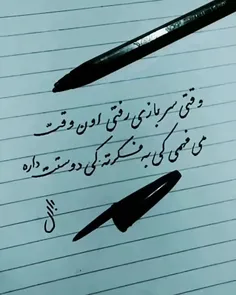 وقتی سربازی رفتی اون وقت
می فهمی کی به فکرته کی دوستت داره